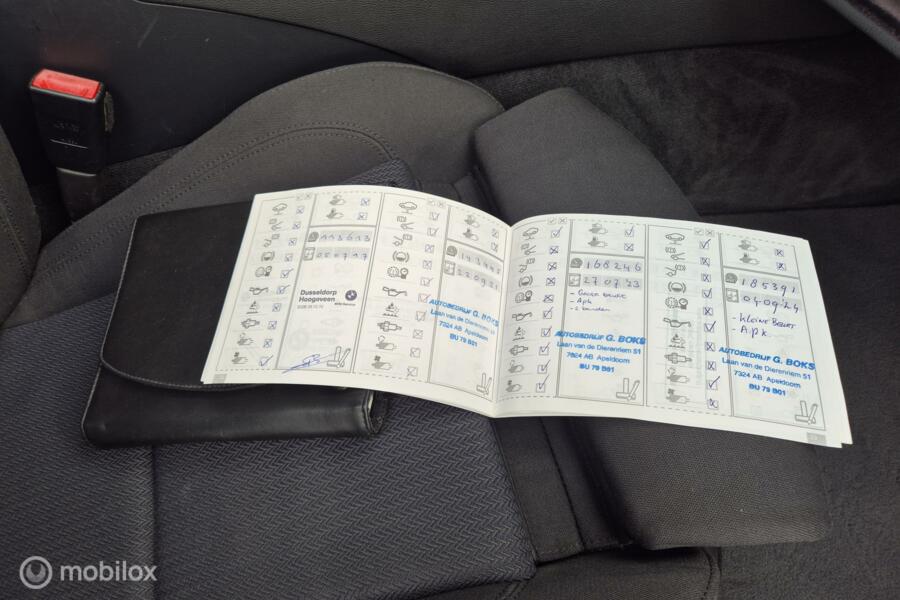 113613
Dusseldorp
Hoogeveen
220921
AUTOBEDRIJF G. BOKS
Laan van de Dierenriem 51
7324 AB Apeldoorn
BU 79 B01
168246
270723
- Grote beurt
- Apk
- 2 banden
AUTOBEDRIJF G. BOKS
Laan van de Dierenriem 51
7324 AB Apeldoorn
BU 79 B01
185391
040924
- Kleine Beurt
- A.p.k
AUTOBEDRIJF G. BOKS
Laan van de Dierenriem 51
7324 AB Apeldoorn
BU 79 B01
mobilox